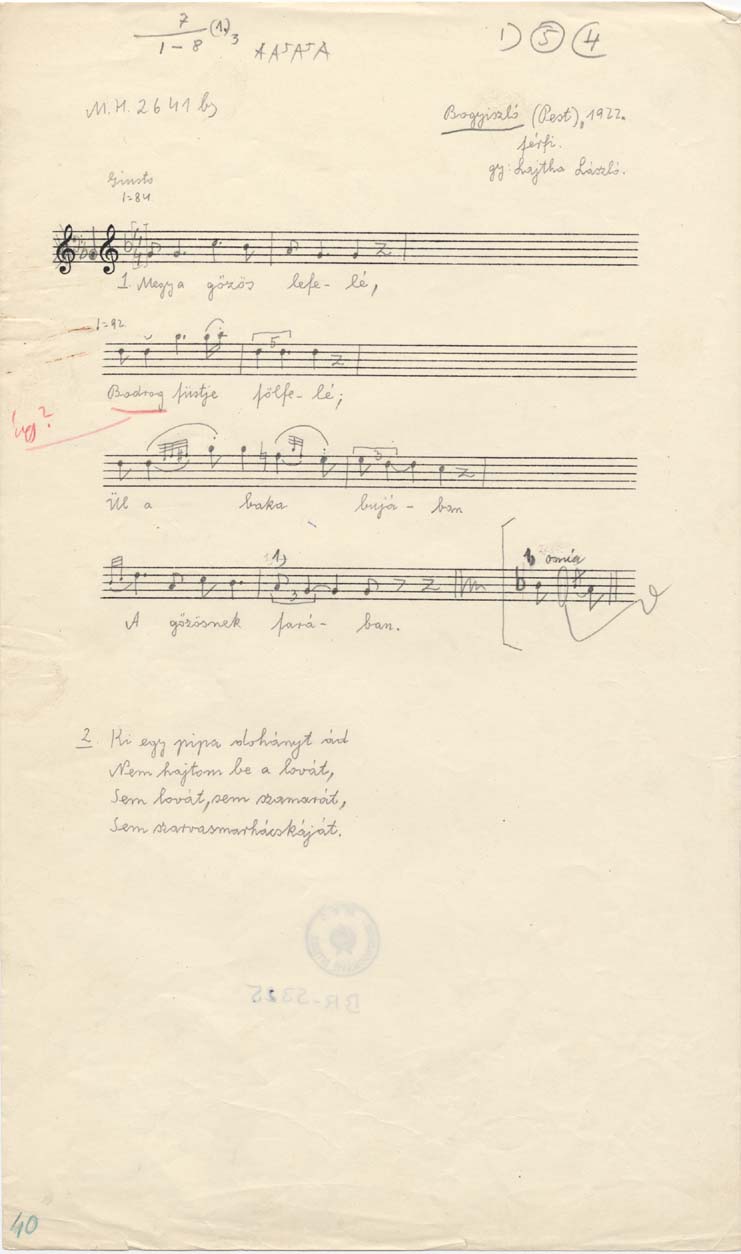 7
1 - 8 (1.) 3
A A⁵ A⁵ A
1) 5 4
M.H. 2641 b)
Bogyiszló (Pest), 1922.
férfi.
gy: Lajtha László.
Giusto
=84
1. Megy a gőzös lefe- lé,
=92
5
Bodrog füstje fölfe- lé;
úgy?
3
Ül a baka bujá- ban
1)
3
A gőzösnek fará- ban.
2. Ki egy pipa dohányt ád
Nem hajtom be a lovát,
Sem lovát, sem szamarát,
Sem szarvasmarhácskáját.
BR-5325
40